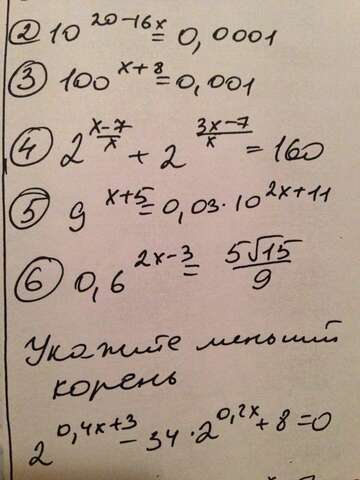 ② 10^(20-16x) = 0,0001
③ 100^(x+8) = 0,001
④ 2^((x-7)/x) + 2^((3x-7)/x) = 160
⑤ 9^(x+5) = 0,03·10^(2x+11)
⑥ 0,6^(2x-3) = 5√15/9
Укажите меньший
корень
2^(0,4x+3) - 34·2^(0,2x) + 8 = 0